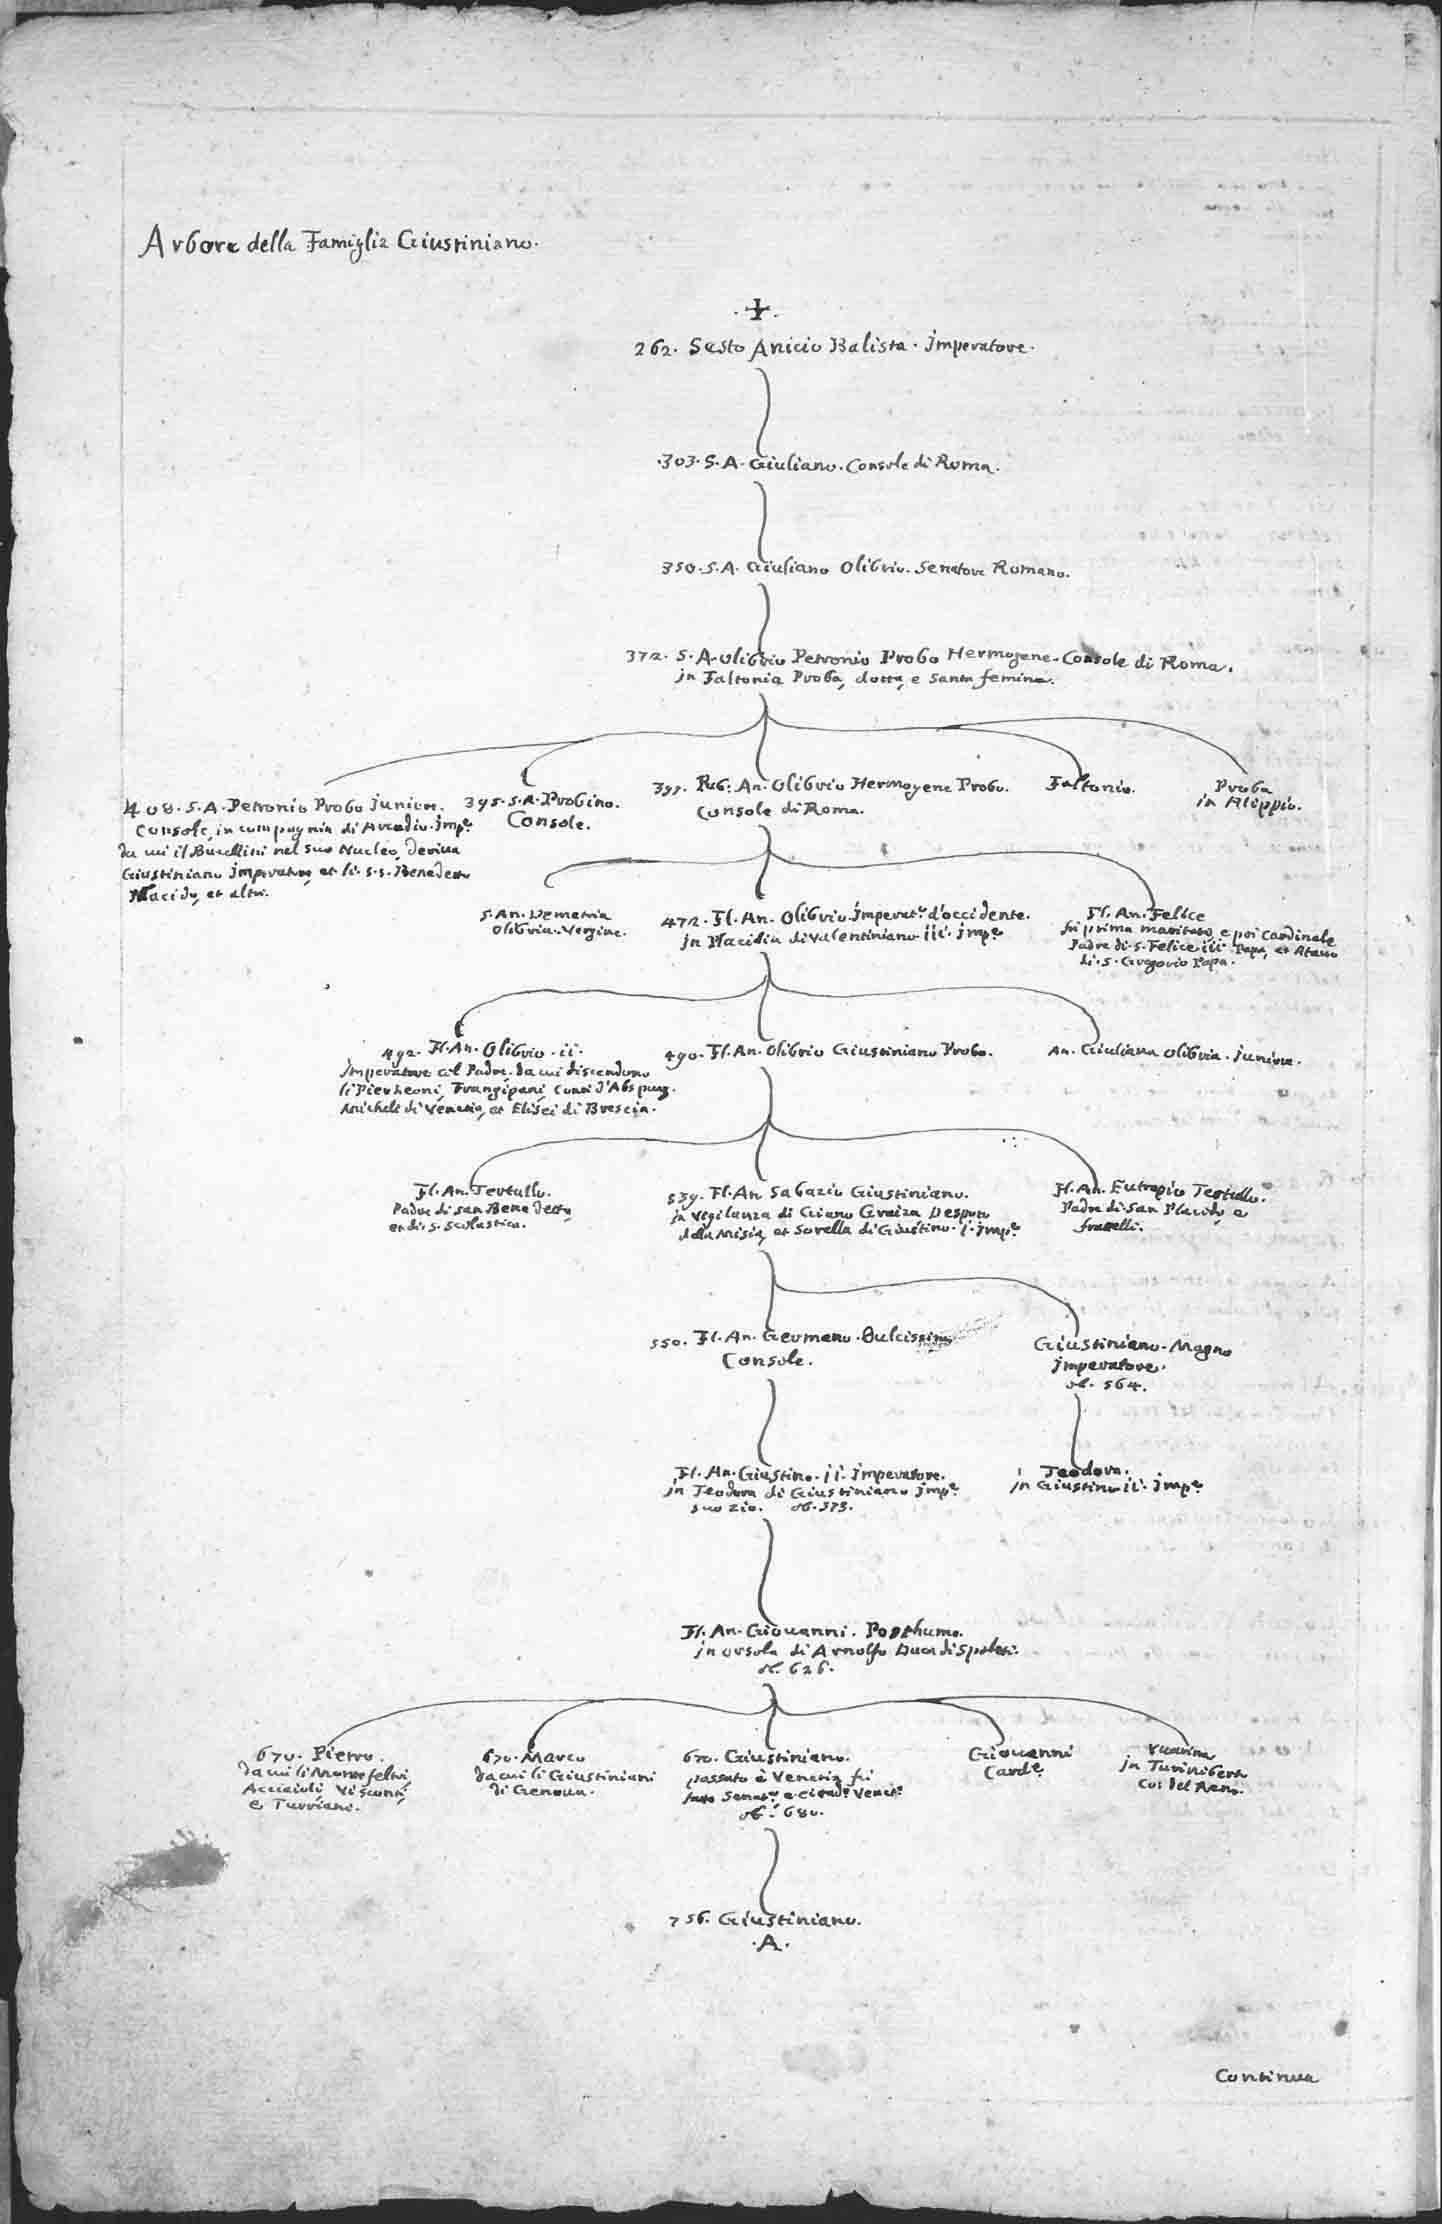 Arbore della Famiglia Giustiniano.
262. Sesto Anicio Balista. Imperatore.
.303. S. A. Giuliano. Console di Roma.
350. S. A. Giuliano Olibrio. Senatore Romano.
372. S. A. Olibrio Petronio Probo Hermogene. Console di Roma.
in Faltonia Proba, dotta, e santa femina.
408. S. A. Petronio Probo Junior.
Console, in compagnia di Arcadio. Impe.
da cui il Bucellini nel suo Nucleo, deriva
Giustiniano Imperatore, et li. s.s. Benedetto
Placido, et altri.
395. S. A. Probino.
Console.
397. An. Olibrio Hermogene Probo.
Console di Roma.
Faltonio.
Proba
in Alippio.
S. An. Demetria
Olibria. Vergine.
472. Fl. An. Olibrio Imperatr. d'occidente.
in Placidia di Valentiniano. iii. Impe.
Fl. An. Felice
fu prima maritato, e poi Cardinale
Padre di S. Felice iii Papa, et Atavo
di. S. Gregorio Papa.
492. Fl. An. Olibrio. ii.
Imperatore col Padre. da cui discendono
li Pierleoni, Frangipani, Conti d'Abspurg.
Micheli di Venetia, et Elisei di Brescia.
490. Fl. An. Olibrio Giustiniano Probo.
An. Giuliana Olibria. Juniore.
Fl. An. Tertullo.
Padre di San Benedetto,
et di. S. Scolastica.
539. Fl. An. Sabazio Giustiniano.
in Vigilanza di Despoto
della Misia, et Sorella di Giustino. i. Impe.
Fl. An. Eutropio Tertullo.
Padre di San Placido, e
fratelli.
550. Fl. An. Germano. Dulcissimo
Console.
Giustiniano. Magno
Imperatore.
ob. 564.
Fl. An. Giustino. ii. Imperatore.
in Teodora di Giustiniano Impe.
suo zio. ob. 573.
Teodora.
in Giustino ii. Impe.
Fl. An. Giovanni. Posthumo.
in Orsola di Arnolfo Duca di Spoleti.
ob. 626.
670. Pietro.
da cui li Montefeltri,
Acciaioli, Visconti,
e Turriani.
670. Marco
da cui li Giustiniani
di Genova.
670. Giustiniano.
passato à Venetia fu
fatto Senatr. e Citadr. Venetr.
ob. 680.
Giovanni
Carde.
in
del Reno.
756. Giustiniano.
.A.
Continua